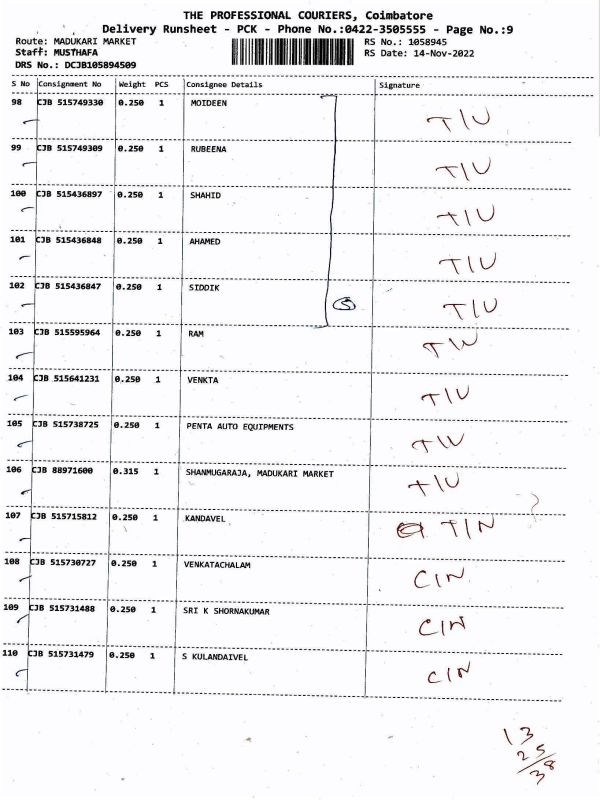 THE PROFESSIONAL COURIERS, Coimbatore
Delivery Runsheet - PCK - Phone No.:0422-3505555 - Page No.:9
Route: MADUKARI MARKET RS No.: 1058945
Staff: MUSTHAFA RS Date: 14-Nov-2022
DRS No.: DCJB105894509
S No Consignment No Weight PCS Consignee Details Signature
98 CJB 515749330 0.250 1 MOIDEEN T/U
99 CJB 515749309 0.250 1 RUBEENA T/U
100 CJB 515436897 0.250 1 SHAHID T/U
101 CJB 515436848 0.250 1 AHAMED T/U
102 CJB 515436847 0.250 1 SIDDIK 5 T/U
103 CJB 515595964 0.250 1 RAM T/U
104 CJB 515641231 0.250 1 VENKTA T/U
105 CJB 515738725 0.250 1 PENTA AUTO EQUIPMENTS T/U
106 CJB 88971600 0.315 1 SHANMUGARAJA, MADUKARI MARKET T/U
107 CJB 515715812 0.250 1 KANDAVEL T/N
108 CJB 515730727 0.250 1 VENKATACHALAM C/N
109 CJB 515731488 0.250 1 SRI K SHORNAKUMAR C/N
110 CJB 515731479 0.250 1 S KULANDAIVEL C/N
13
25
38